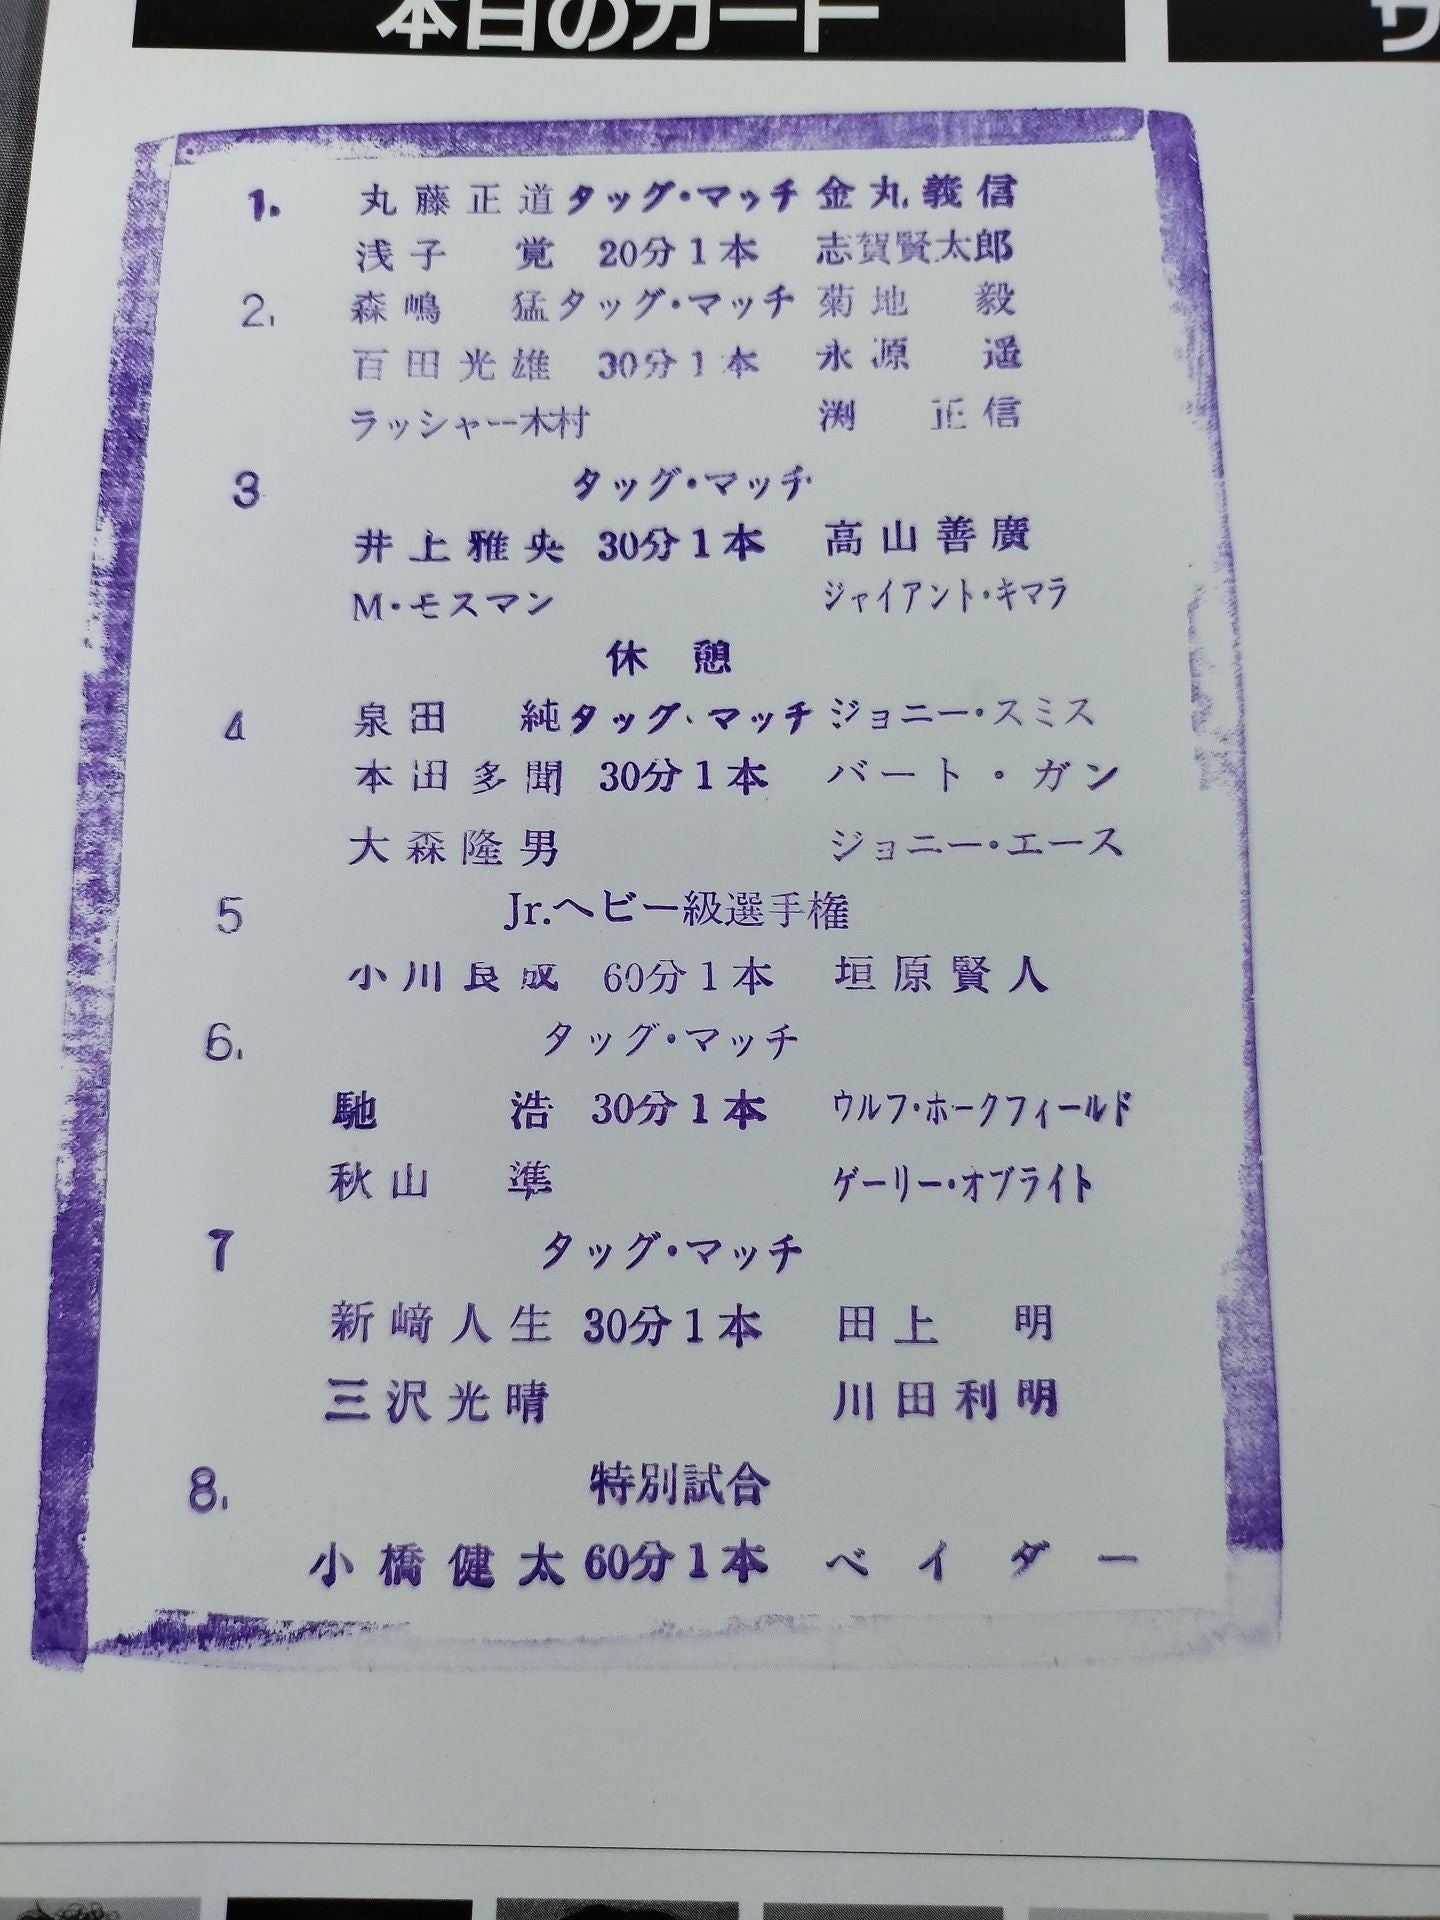 本日のカード
サ
1. 丸藤正道 タッグ・マッチ 金丸義信
浅子 覚 20分1本 志賀賢太郎
2. 森嶋 猛 タッグ・マッチ 菊地 毅
百田光雄 30分1本 永源 遥
ラッシャー木村 渕 正信
3 タッグ・マッチ
井上雅央 30分1本 高山善廣
M・モスマン ジャイアント・キマラ
休憩
4 泉田 純 タッグ・マッチ ジョニー・スミス
本田多聞 30分1本 バート・ガン
大森隆男 ジョニー・エース
5 Jr.ヘビー級選手権
小川良成 60分1本 垣原賢人
6. タッグ・マッチ
馳 浩 30分1本 ウルフ・ホークフィールド
秋山 準 ゲーリー・オブライト
7 タッグ・マッチ
新﨑人生 30分1本 田上 明
三沢光晴 川田利明
8. 特別試合
小橋健太 60分1本 ベイダー